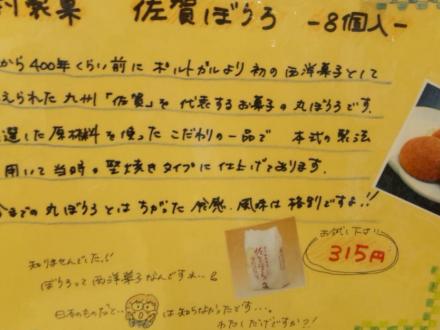 製菓 佐賀ぼうろ -8個入-
から400年くらい前にポルトガルより初の西洋菓子として
えられた九州「佐賀」を代表するお菓子の丸ぼうろです。
選した原材料を使ったこだわりの一品で 本式の製法
用いて当時の堅焼きタイプに仕上げてあります。
までの丸ぼうろとはちがった 食感、風味は格別ですよ!!
お試し下さい
315円
佐賀ぼうろ
知りませんでした!
ぼうろって西洋菓子なんですね…
日本のものだと… は知らなかったです…。
わたしだけですか?!